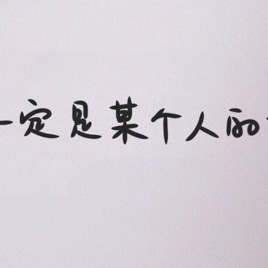 一定是某个人的